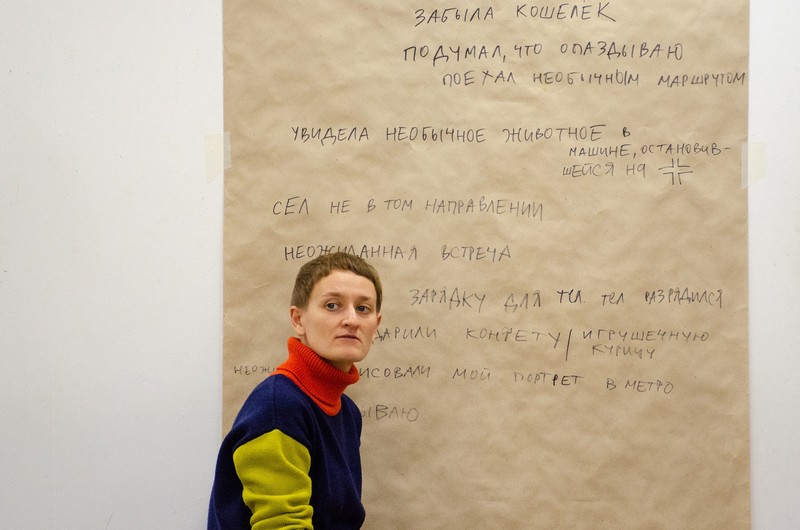 ЗАБЫЛА КОШЕЛЁК
ПОДУМАЛ, ЧТО ОПАЗДЫВАЮ
ПОЕХАЛ НЕОБЫЧНЫМ МАРШРУТОМ
УВИДЕЛА НЕОБЫЧНОЕ ЖИВОТНОЕ В
МАШИНЕ, ОСТАНОВИВ-
ШЕЙСЯ НА
СЕЛ НЕ В ТОМ НАПРАВЛЕНИИ
НЕОЖИДАННАЯ ВСТРЕЧА
ЗАРЯДКУ ДЛЯ ТЕЛ. ТЕЛ РАЗРЯДИЛСЯ
ДАРИЛИ КОНФЕТУ / ИГРУШЕЧНУЮ
КУРИЦУ
НЕОЖИ ИСОВАЛИ МОЙ ПОРТРЕТ В МЕТРО
ЫВАЮ